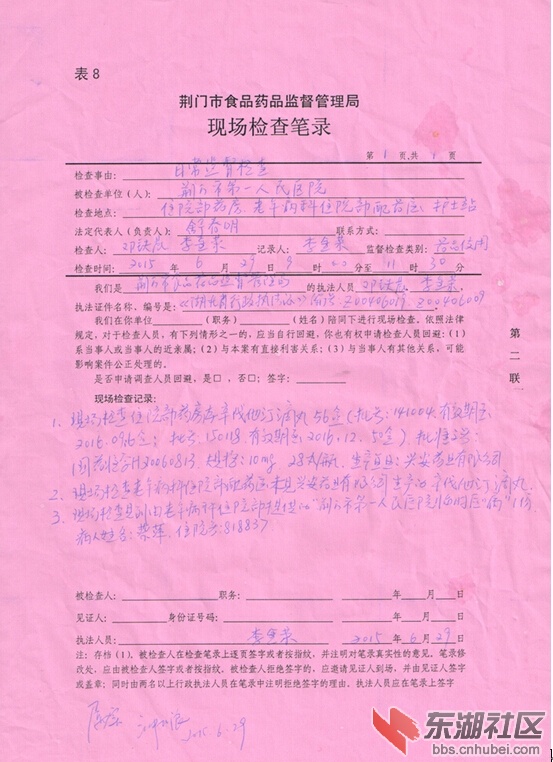 表 8
荆门市食品药品监督管理局
现场检查笔录
第 1 页,共 1 页
检查事由: 日常监督检查
被检查单位(人): 荆门市第一人民医院
检查地点: 住院部药房、老年病科住院部配药区、护士站
法定代表人(负责人): 联系方式:
检查人: 李金荣 记录人: 李金荣 监督检查类别: 药品使用
检查时间: 2015 年 6 月 29 日 9 时 分至 11 时 30 分
我们是 荆门市食品药品监督管理局 的执法人员 李金荣
执法证件名称、编号是: 《湖北省行政执法证》 Z00406009
我们在你单位 (职务) (姓名)陪同下进行现场检查。依照法律
规定,对于检查人员,有下列情形之一的,应当自行回避,你也有权申请检查人员回避:(1)
系当事人或当事人的近亲属;(2)与本案有直接利害关系;(3)与当事人有其他关系,可能
影响案件公正处理的。
是否申请调查人员回避,是□,否□;签字:
第二联
现场检查记录:
1、现场检查住院部药房存辛伐他汀滴丸56盒(批号:141004 有效期至:
2016.09 6盒; 批号:150118 有效期至:2016.12. 50盒)。批准文号:
国药准字H20060813 规格:10mg 兴安药业有限公司
2、现场检查老年病科住院部配药区未见兴安药业有限公司生产的辛伐他汀滴丸。
3、现场检查见到由老年病科住院部提供的"荆门市第一人民医院临时医嘱"1份
病人姓名: 住院号:818837
被检查人: 职务: 年 月 日
见证人: 身份证号码: 年 月 日
执法人员: 李金荣 2015 年 6 月 29 日
注:存档(1)、被检查人在检查笔录上逐页签字或者按指纹,并注明对笔录真实性的意见。笔录修
改处,应由被检查人签字或者按指纹。被检查人拒绝签字的,应邀请见证人到场,并由见证人签字
或盖章;同时由两名以上行政执法人员在笔录中注明拒绝签字的理由。执法人员应在笔录上签字
2015.6.29
东湖社区
bbs.cnhubei.com